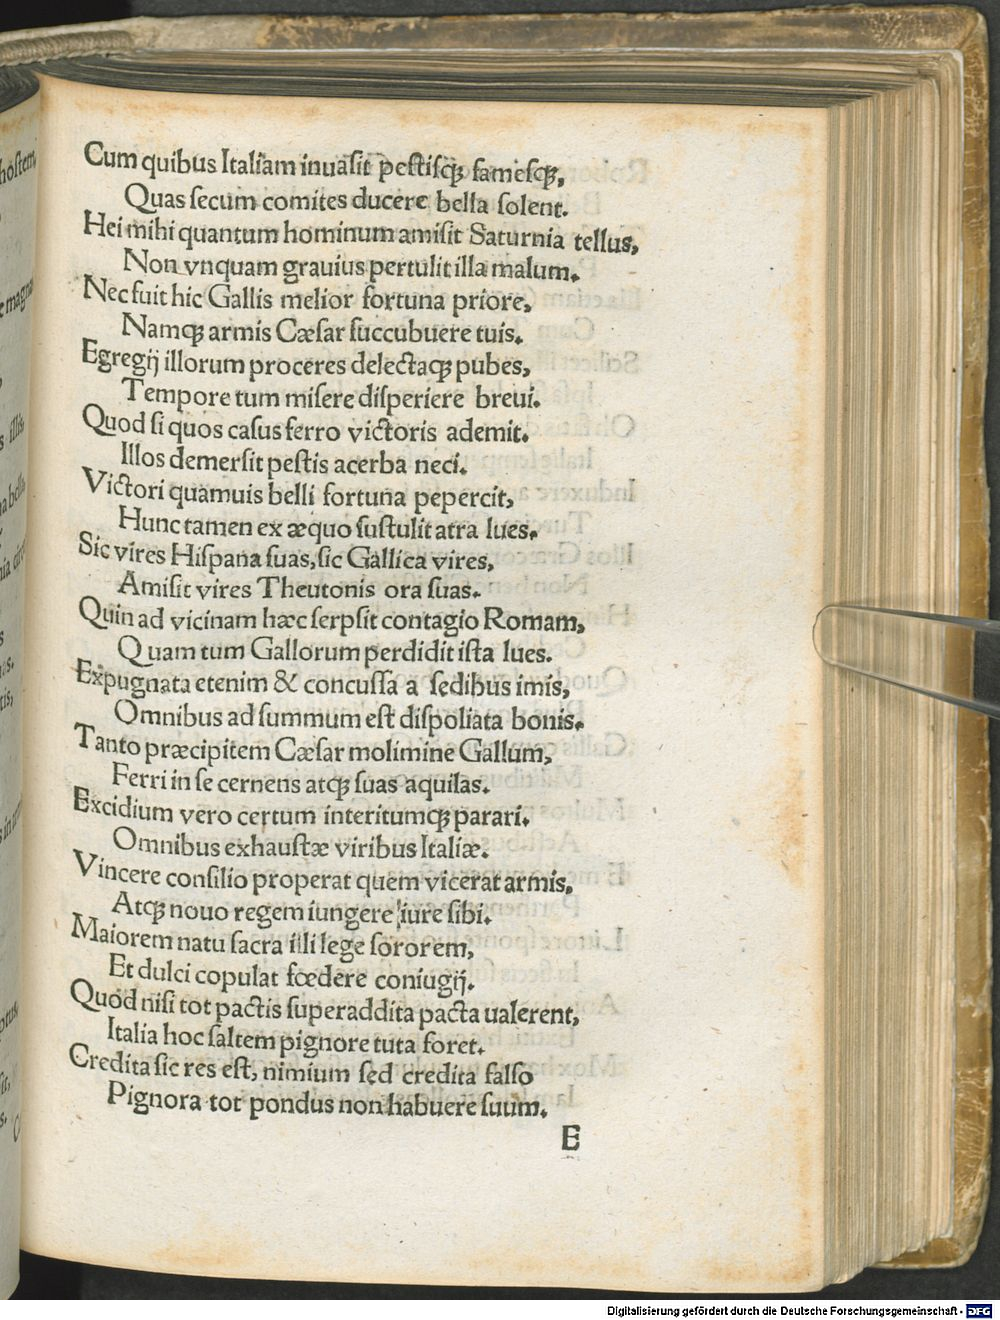 Cum quibus Italiam inuaſit peſtiſqꝫ fameſqꝫ,
Quas ſecum comites ducere bella ſolent.
Hei mihi quantum hominum amiſit Saturnia tellus,
Non vnquam grauius pertulit illa malum.
Nec fuit hic Gallis melior fortuna priore,
Namqꝫ armis Cæſar ſuccubuere tuis.
Egregij illorum proceres delectaqꝫ pubes,
Tempore tum miſere diſperiere breui.
Quod ſi quos caſus ferro victoris ademit.
Illos demerſit peſtis acerba neci.
Victori quamuis belli fortuna pepercit,
Hunc tamen ex æquo ſuſtulit atra lues.
Sic vires Hiſpana ſuas, ſic Gallica vires,
Amiſit vires Theutonis ora ſuas.
Quin ad vicinam hæc ſerpſit contagio Romam,
Quam tum Gallorum perdidit iſta lues.
Expugnata etenim & concuſſa a ſedibus imis,
Omnibus ad ſummum eſt diſpoliata bonis.
Tanto præcipitem Cæſar molimine Gallum,
Ferri in ſe cernens atqꝫ ſuas aquilas.
Excidium vero certum interitumqꝫ parari.
Omnibus exhauſtæ viribus Italiæ.
Vincere conſilio properat quem vicerat armis,
Atqꝫ nouo regem iungere iure ſibi.
Maiorem natu ſacra illi lege ſororem,
Et dulci copulat fœdere coniugij.
Quod niſi tot pactis ſuperaddita pacta ualerent,
Italia hoc ſaltem pignore tuta foret.
Credita ſic res eſt, nimium ſed credita falſo
Pignora tot pondus non habuere ſuum.
E
hoſtem,
illis
Digitalisierung gefördert durch die Deutsche Forschungsgemeinschaft - DFG